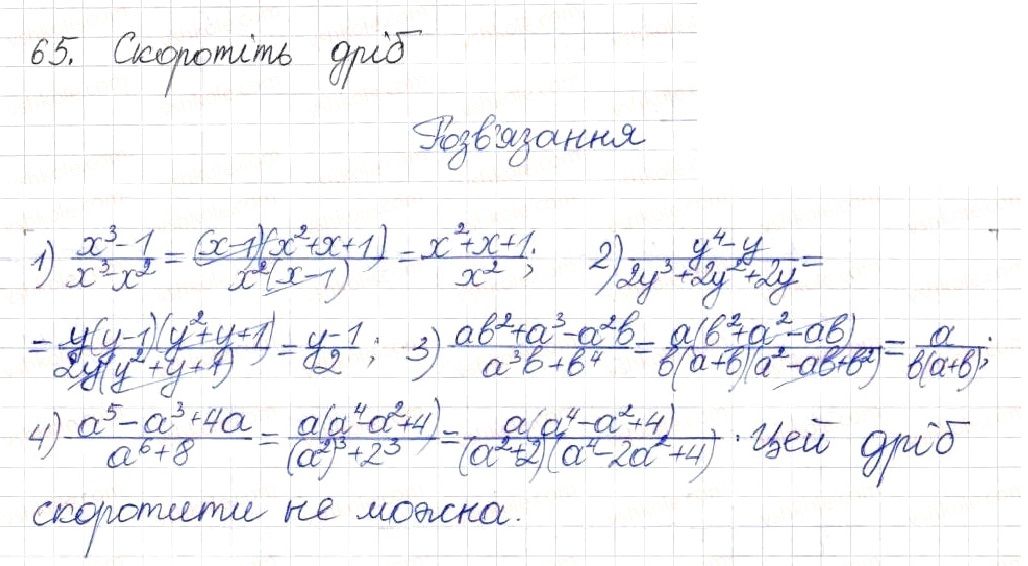 65. Скоротіть дріб
Розв'язання
1) \frac{x^3-1}{x^3-x^2} = \frac{(x-1)(x^2+x+1)}{x^2(x-1)} = \frac{x^2+x+1}{x^2}; 2) \frac{y^4-y}{2y^3+2y^2+2y} =
= \frac{y(y-1)(y^2+y+1)}{2y(y^2+y+1)} = \frac{y-1}{2}; 3) \frac{ab^2+a^3-a^2b}{a^3b+b^4} = \frac{a(b^2+a^2-ab)}{b(a+b)(a^2-ab+b^2)} = \frac{a}{b(a+b)};
4) \frac{a^5-a^3+4a}{a^6+8} = \frac{a(a^4-a^2+4)}{(a^2)^3+2^3} = \frac{a(a^4-a^2+4)}{(a^2+2)(a^4-2a^2+4)}. Цей дріб
скоротити не можна.